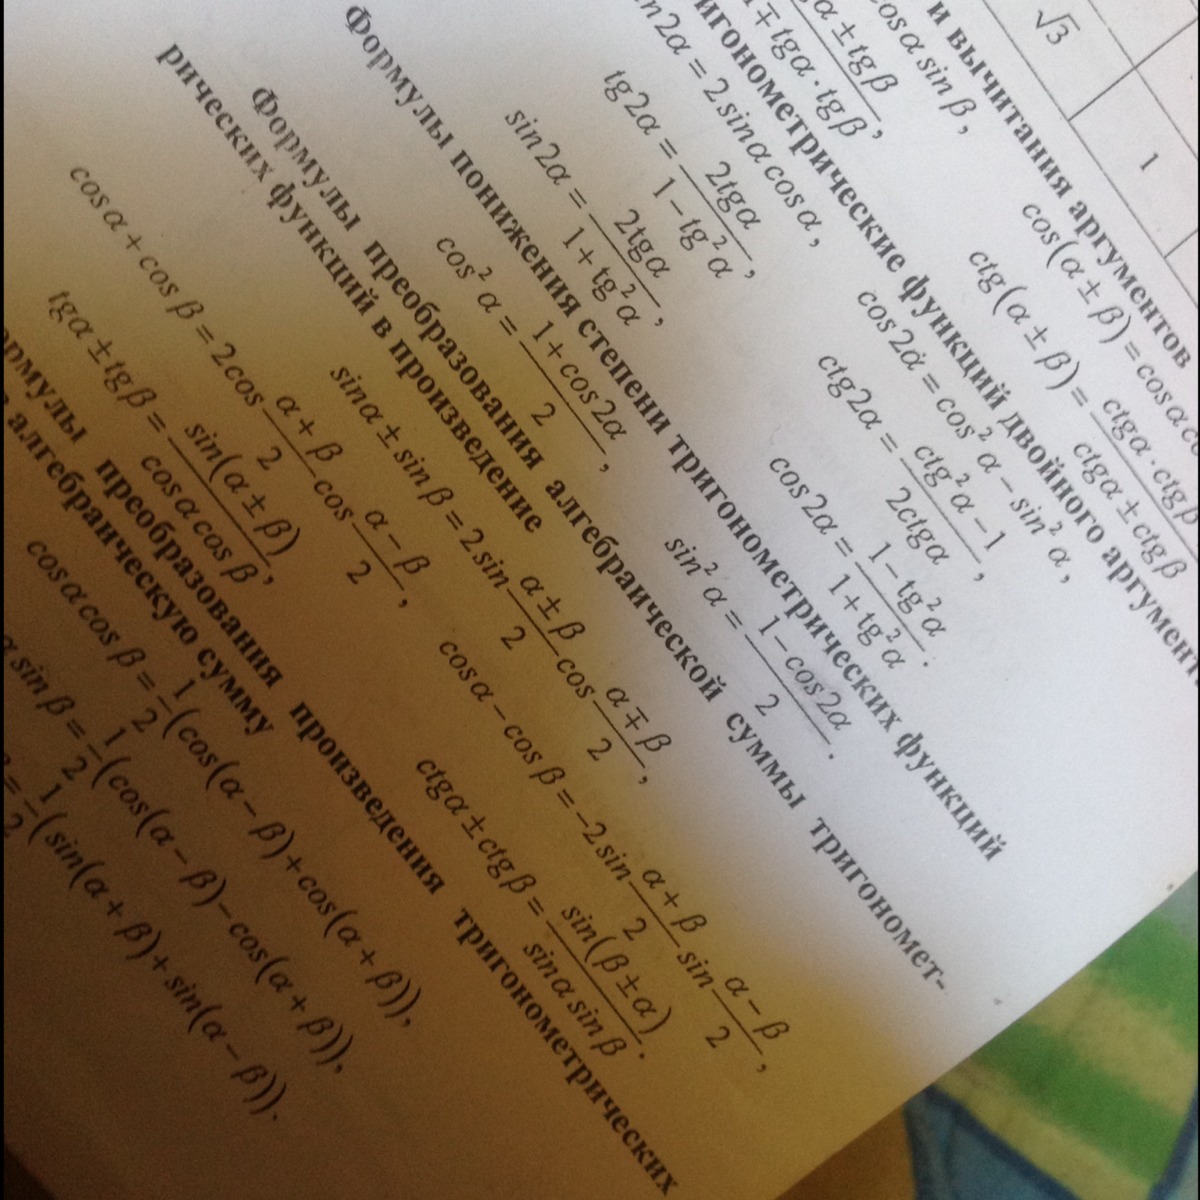 √3
1
и вычитания аргументов
cos α sin β, cos(α ± β) = cos α
α ± tg β / 1 ∓ tgα · tg β, ctg(α ± β) = ctgα · ctg β / ctgα ± ctg β
тригонометрические функций двойного аргумент
in 2α = 2 sin α cos α, cos 2α = cos² α − sin² α,
tg 2α = 2tgα / 1 − tg² α, ctg2α = ctg² α − 1 / 2ctgα,
sin 2α = 2tgα / 1 + tg² α, cos 2α = 1 − tg² α / 1 + tg² α.
Формулы понижения степени тригонометрических функций
cos² α = 1 + cos 2α / 2, sin² α = 1 − cos 2α / 2.
Формулы преобразования алгебраической суммы тригономет-
рических функций в произведение
sin α ± sin β = 2 sin α ± β / 2 cos α ∓ β / 2,
cos α + cos β = 2 cos α + β / 2 cos α − β / 2, cos α − cos β = −2 sin α + β / 2 sin α − β / 2,
tgα ± tg β = sin(α ± β) / cos α cos β, ctgα ± ctg β = sin(β ± α) / sin α sin β.
ормулы преобразования произведения тригонометрических
в алгебраическую сумму
cos α cos β = 1/2 (cos(α − β) + cos(α + β)),
α sin β = 1/2 (cos(α − β) − cos(α + β)),
β = 1/2 (sin(α + β) + sin(α − β)).